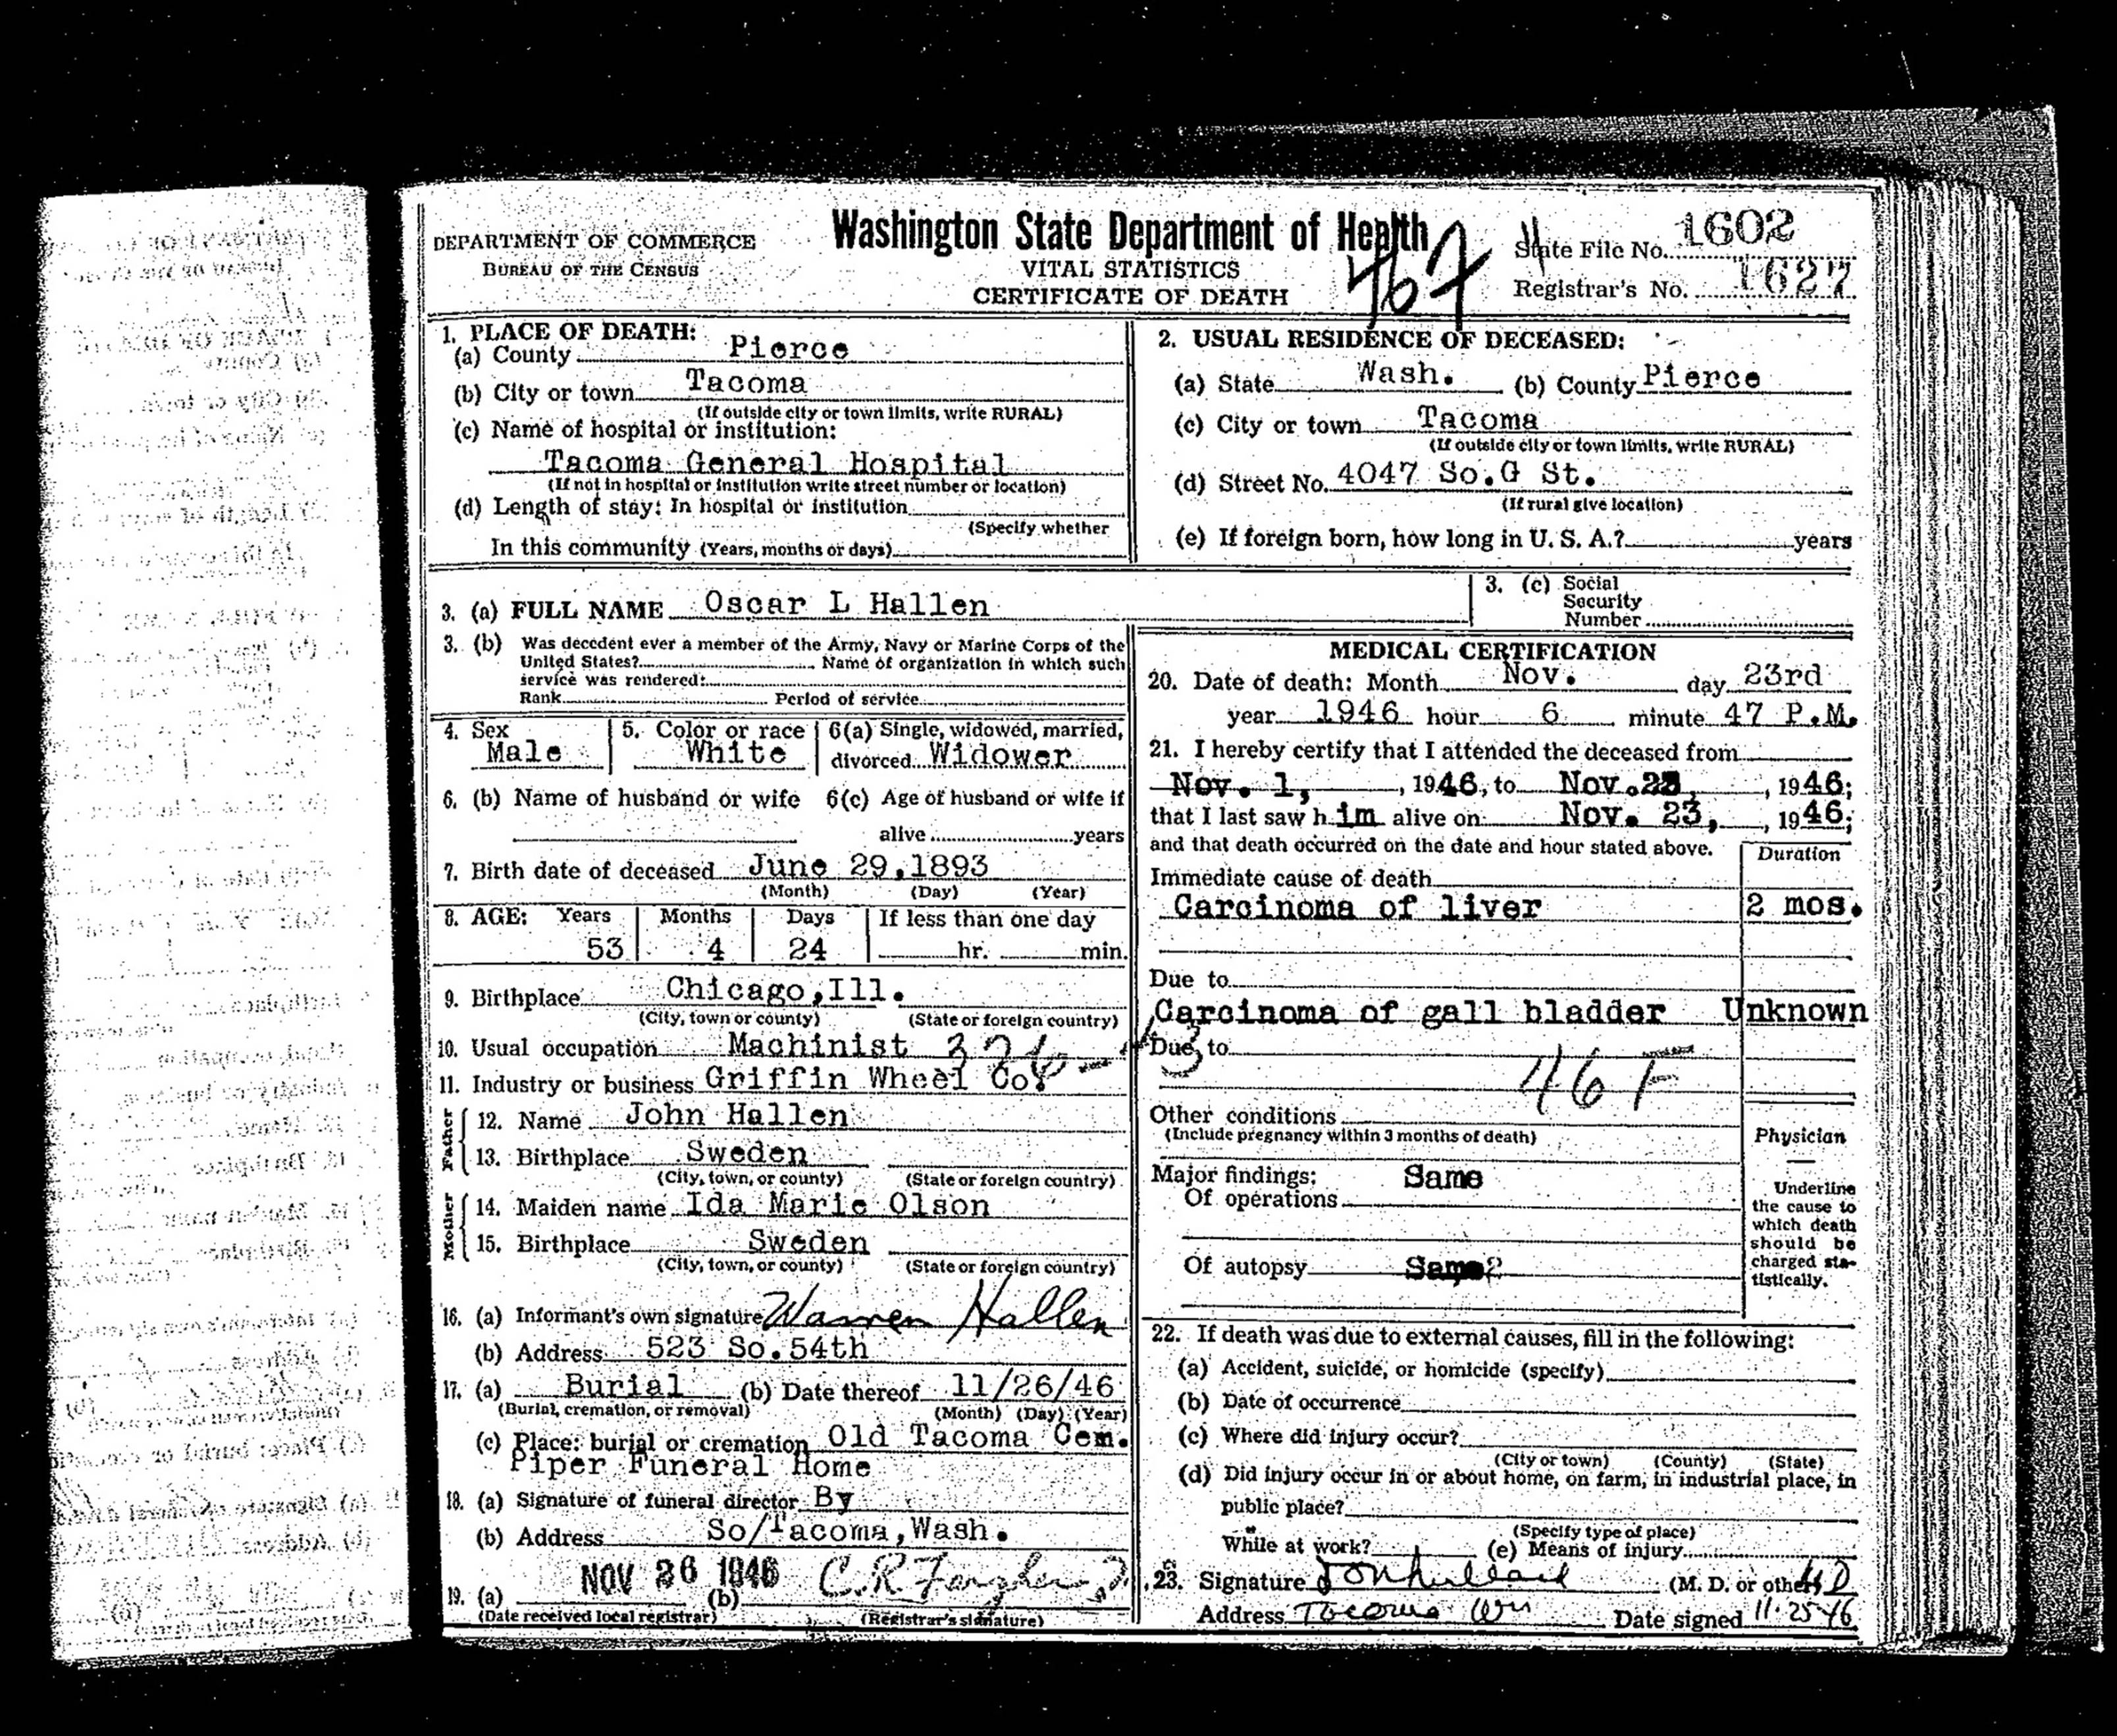 DEPARTMENT OF COMMERCE
BUREAU OF THE CENSUS
Washington State Department of Health
VITAL STATISTICS
CERTIFICATE OF DEATH
467
State File No. 1602
Registrar's No. 1627
1. PLACE OF DEATH:
(a) County Pierce
(b) City or town Tacoma
(If outside city or town limits, write RURAL)
(c) Name of hospital or institution:
Tacoma General Hospital
(If not in hospital or institution write street number or location)
(d) Length of stay: In hospital or institution
(Specify whether
In this community (Years, months or days)
2. USUAL RESIDENCE OF DECEASED:
(a) State Wash. (b) County Pierce
(c) City or town Tacoma
(If outside city or town limits, write RURAL)
(d) Street No. 4047 So.G St.
(If rural give location)
(e) If foreign born, how long in U. S. A.? years
3. (a) FULL NAME Oscar L Hallen
3. (c) Social
Security
Number
3. (b) Was decedent ever a member of the Army, Navy or Marine Corps of the
United States? Name of organization in which such
service was rendered:
Rank Period of service
4. Sex Male
5. Color or race White
6(a) Single, widowed, married,
divorced Widower
6. (b) Name of husband or wife 6(c) Age of husband or wife if
alive years
7. Birth date of deceased June 29,1893
(Month) (Day) (Year)
8. AGE: Years Months Days If less than one day
53 4 24 hr. min.
9. Birthplace Chicago,Ill.
(City, town or county) (State or foreign country)
10. Usual occupation Machinist
11. Industry or business Griffin Wheel Co.
Father
12. Name John Hallen
13. Birthplace Sweden
(City, town, or county) (State or foreign country)
Mother
14. Maiden name Ida Marie Olson
15. Birthplace Sweden
(City, town, or county) (State or foreign country)
16. (a) Informant's own signature Warren Hallen
(b) Address 523 So.54th
17. (a) Burial (b) Date thereof 11/26/46
(Burial, cremation, or removal) (Month) (Day) (Year)
(c) Place: burial or cremation Old Tacoma Cem.
Piper Funeral Home
18. (a) Signature of funeral director By
(b) Address So/Tacoma,Wash.
19. (a) NOV 26 1946 (b) C.R.
(Date received local registrar) (Registrar's signature)
MEDICAL CERTIFICATION
20. Date of death: Month Nov. day 23rd
year 1946 hour 6 minute 47 P.M.
21. I hereby certify that I attended the deceased from
Nov. 1, , 1946, to Nov.23, , 1946;
that I last saw him alive on Nov. 23, , 1946;
and that death occurred on the date and hour stated above.
Duration
Immediate cause of death
Carcinoma of liver 2 mos.
Due to
Carcinoma of gall bladder Unknown
Due to
46 F
Other conditions
(Include pregnancy within 3 months of death)
Major findings: Same
Of operations
Of autopsy Same?
Physician
Underline
the cause to
which death
should be
charged sta-
tistically.
22. If death was due to external causes, fill in the following:
(a) Accident, suicide, or homicide (specify)
(b) Date of occurrence
(c) Where did injury occur?
(City or town) (County) (State)
(d) Did injury occur in or about home, on farm, in industrial place, in
public place?
(Specify type of place)
While at work? (e) Means of injury
23. Signature (M. D. or other) M D
Address Tacoma Wn Date signed 11-25-46